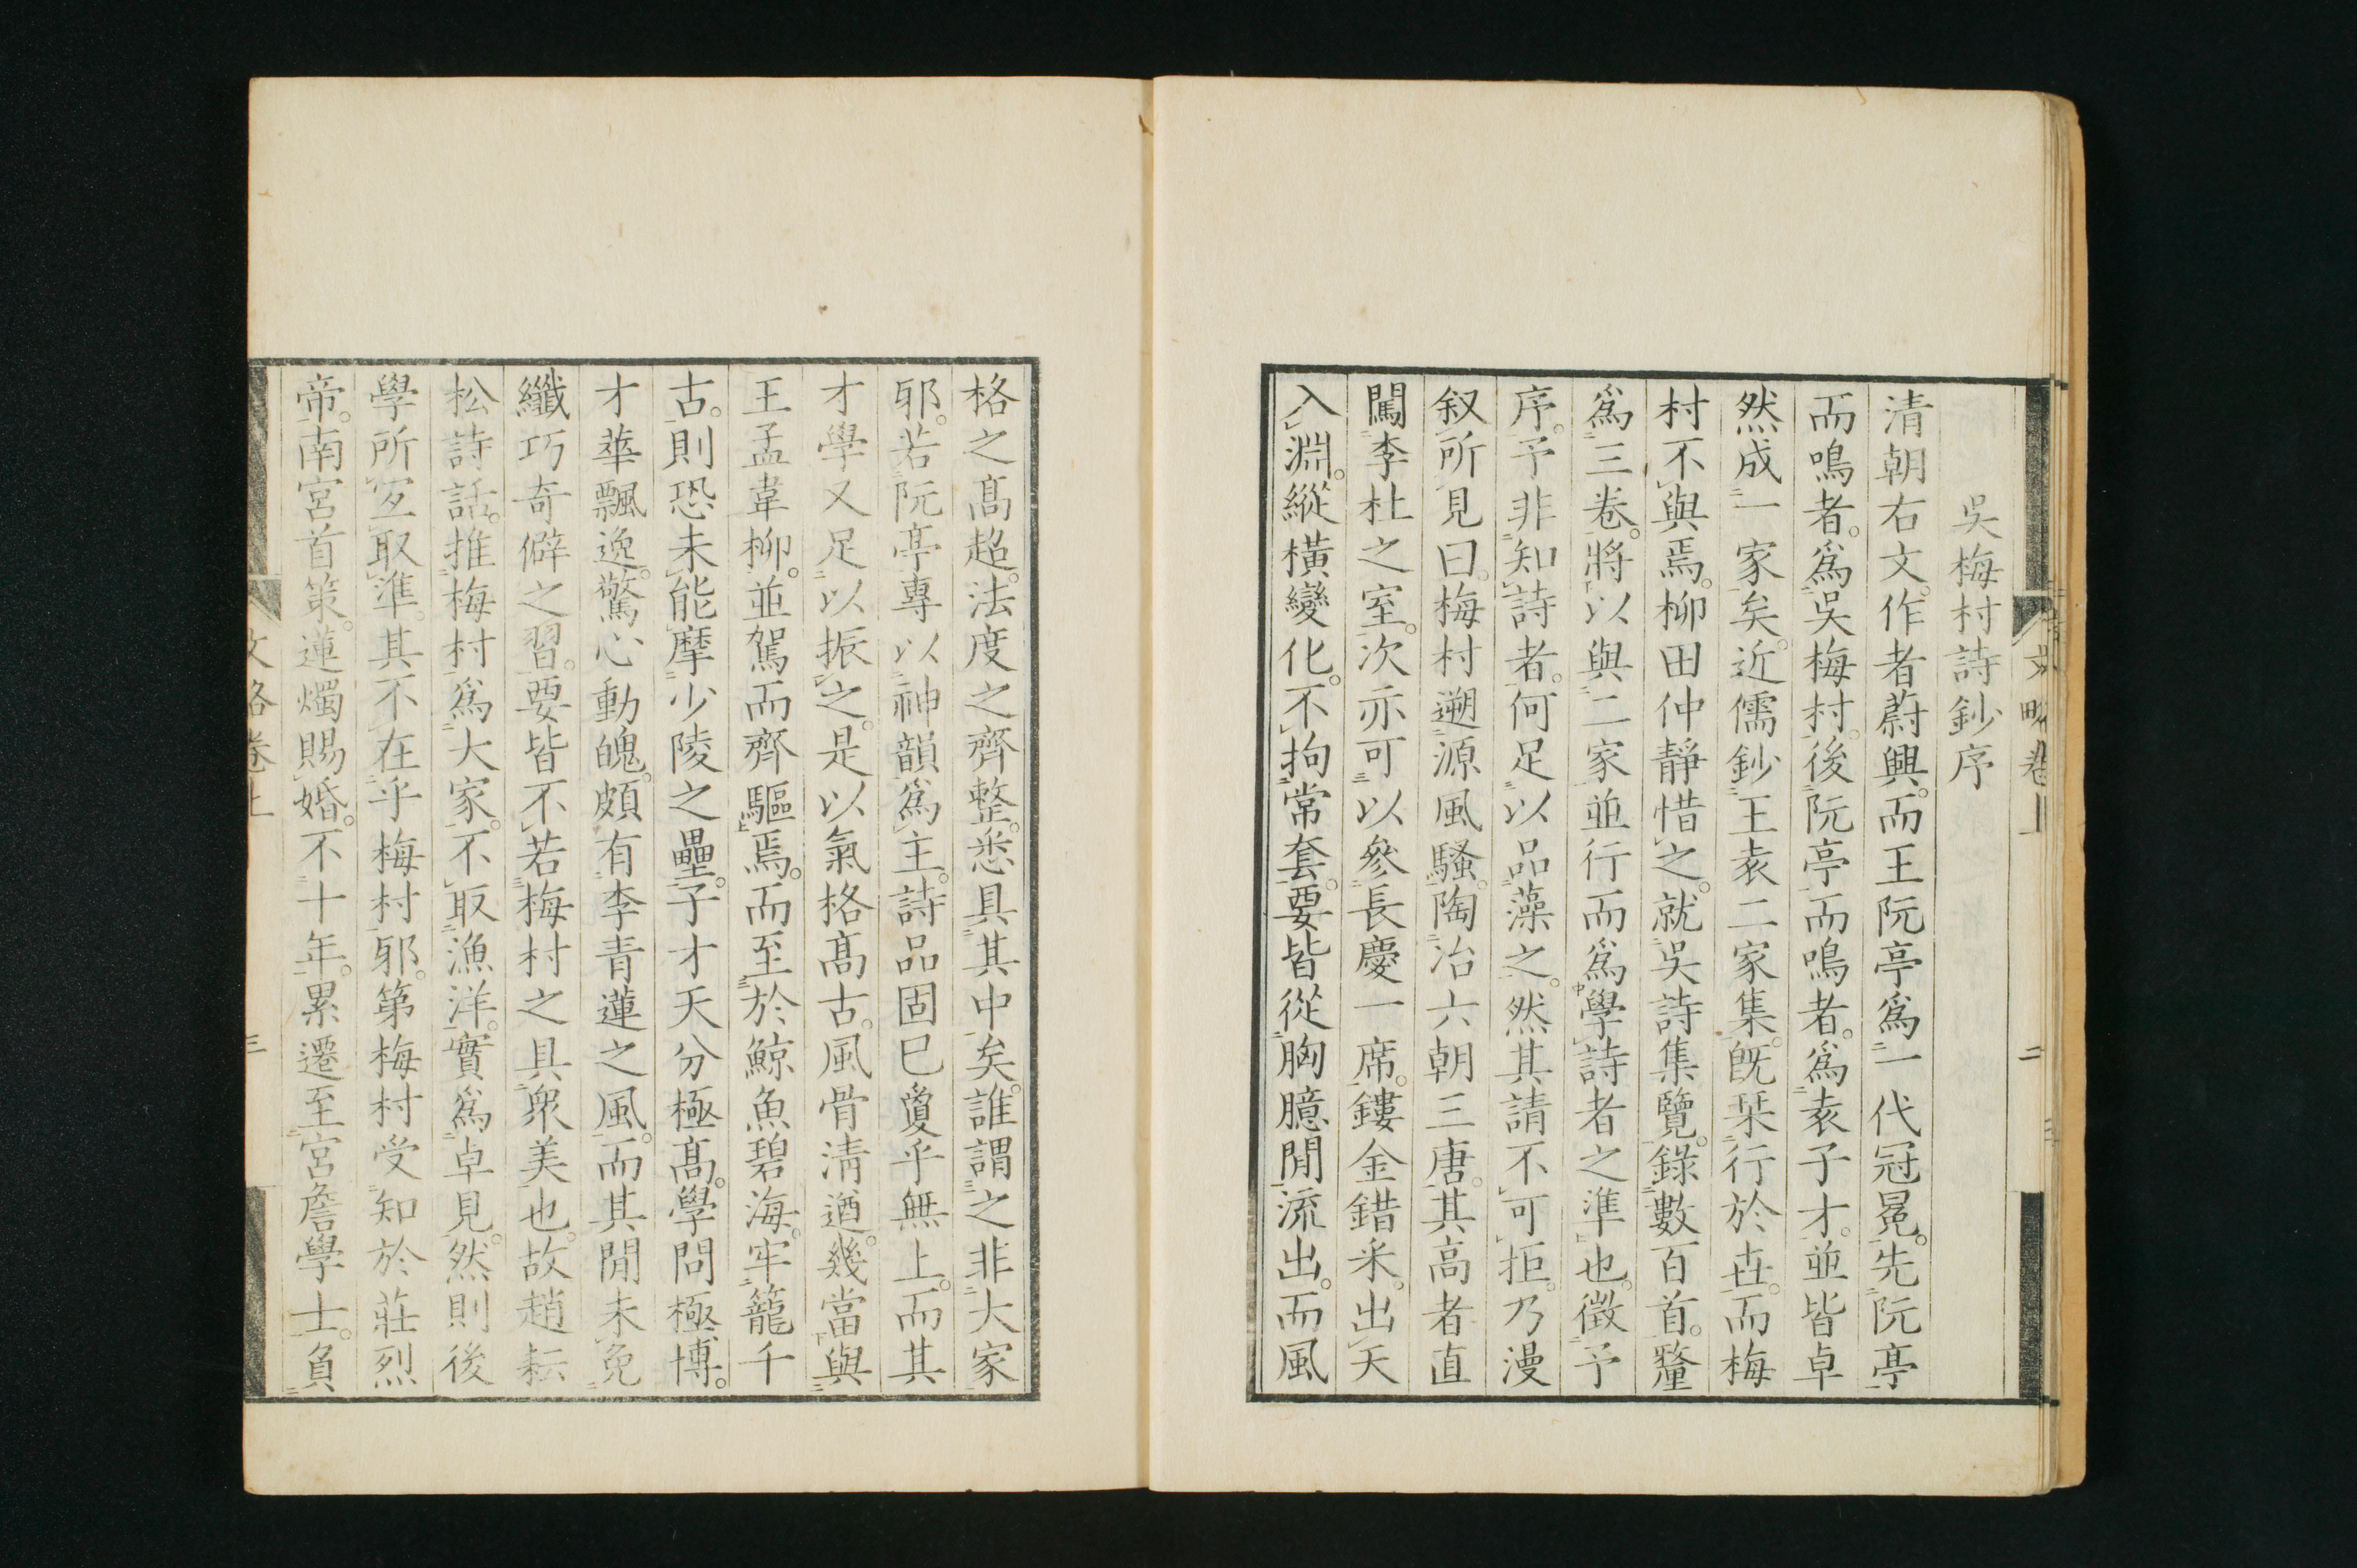 吳梅村詩鈔序
清朝右文。作者蔚興。而王阮亭爲一代冠冕。先阮亭
而鳴者。爲吳梅村。後阮亭而鳴者。爲袁子才。並皆卓
然成一家矣。近儒鈔王袁二家集。既栞行於世。而梅
村不與焉。柳田仲靜惜之。就吳詩集覽。錄數百首。釐
爲三卷。將以與二家並行而爲學詩者之準也。徵予
序。予非知詩者。何足以品藻之。然其請不可拒。乃漫
叙所見曰。梅村遡源風騷。陶冶六朝三唐。其高者直
闖李杜之室。次亦可以參長慶一席。鏤金錯采。出天
入淵。縱橫變化。不拘常套。要皆從胸臆閒流出。而風
格之高超。法度之齊整。悉具其中矣。誰謂之非大家
邪。若阮亭專以神韻爲主。詩品固已夐乎無上。而其
才學又足以振之。是以氣格高古。風骨清遒。幾當與
王孟韋柳。並駕而齊驅焉。而至於鯨魚碧海。牢籠千
古。則恐未能摩少陵之壘。子才天分極高。學問極博。
才華飄逸。驚心動魄。頗有李青蓮之風。而其閒未免
纖巧奇僻之習。要皆不若梅村之具衆美也。故趙耘
松詩話。推梅村爲大家。不取漁洋。實爲卓見。然則後
學所宜取準。其不在乎梅村邪。第梅村受知於莊烈
帝。南宮首策。蓮燭賜婚。不十年。累遷至宮詹學士。負
文略卷上
二
文略卷上
三